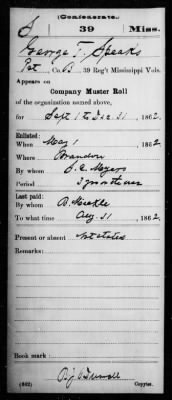 (Confederate.)
S 39 Miss.
George T. Speaks
Pvt Co. B, 39 Reg't Mississippi Vols.
Appears on
Company Muster Roll
of the organization named above,
for Sept 1 to Dec 31, 1862.
Enlisted:
When May 1, 1862
Where Brandon
By whom Meyers
Period
Last paid:
By whom
To what time Aug 31, 1862
Present or absent Not stated
Remarks:
Book mark:
(642) Copyist.